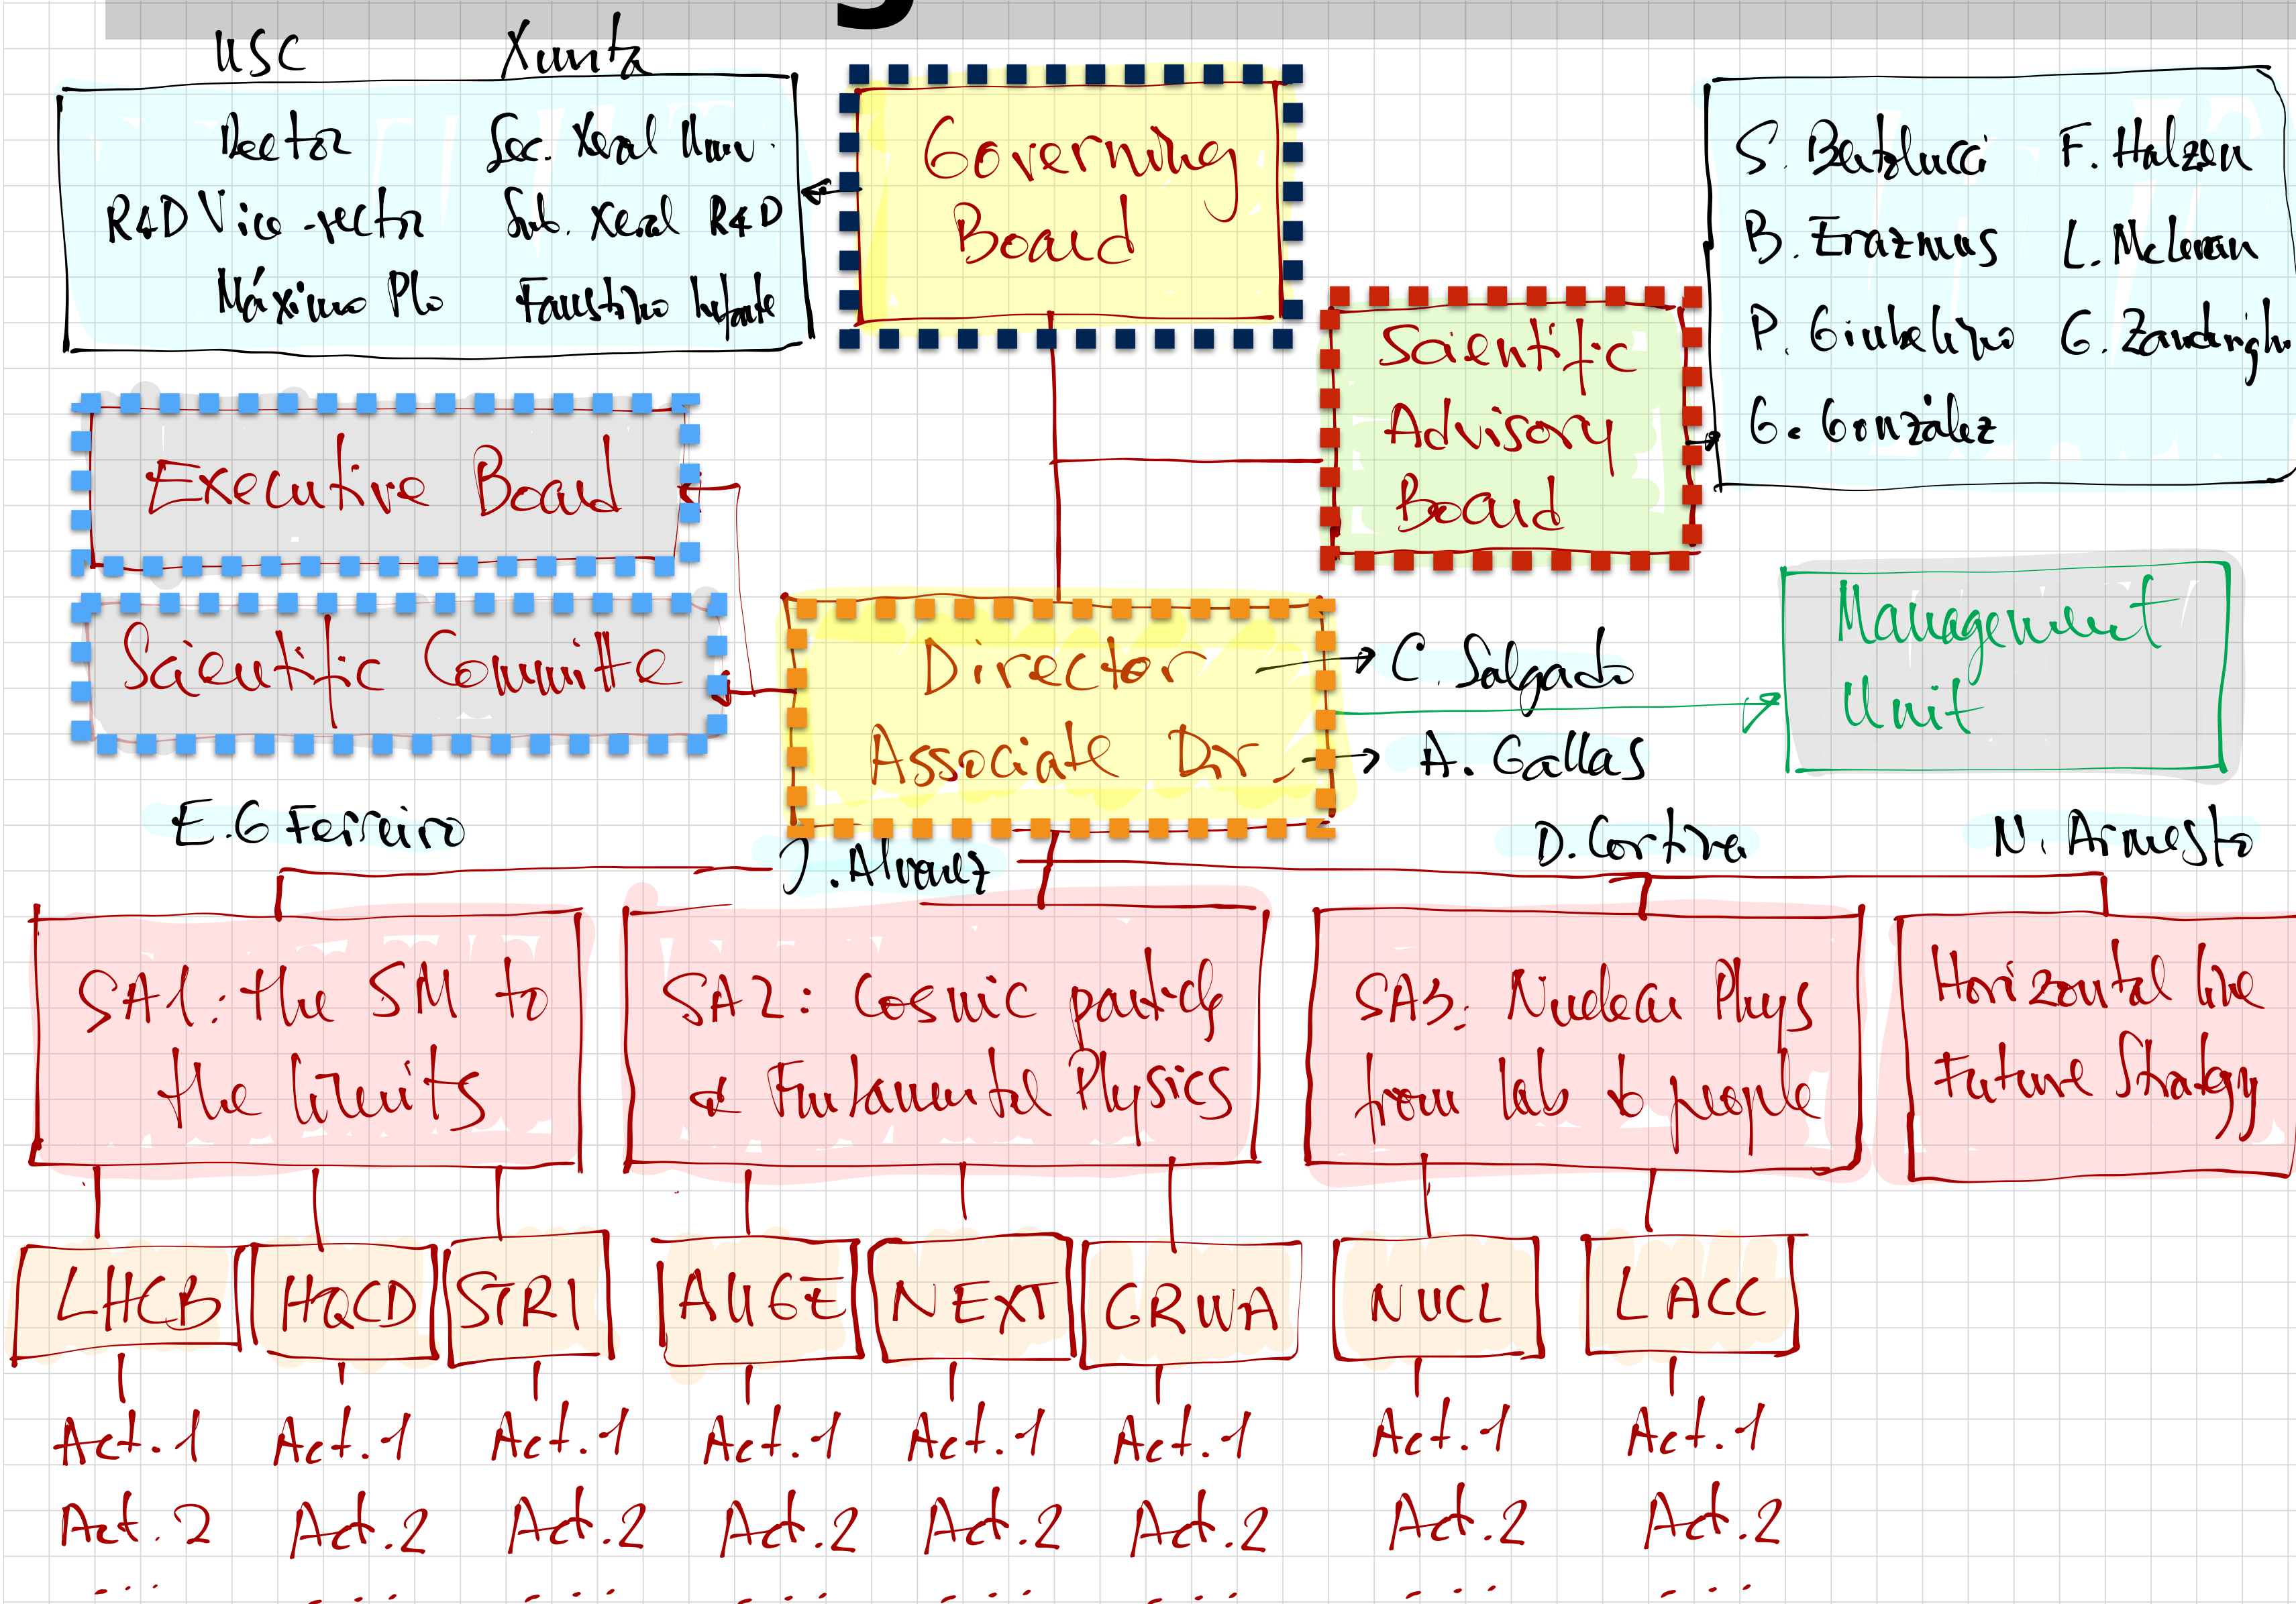 USC Xunta
Rector Sec. Xeral Univ.
R&D Vice-rector Sub. Xeral R&D
Máximo Plo Faustino Infante
Governing
Board
S. Bertolucci F. Halzen
B. Erazmus L. McLerran
P. Giubellino G. Zanderighi
G. González
Scientific
Advisory
Board
Executive Board
Scientific Committe
Director
Associate Dir.
C. Salgado
A. Gallas
Management
Unit
E.G Ferreiro
J. Alvarez
D. Cortina
N. Armesto
SA1: the SM to
the limits
SA2: Cosmic particle
& Fundamental Physics
SA3: Nuclear Phys
from lab to people
Horizontal line
Future Strategy
LHCB HQCD STRI AUGE NEXT GRWA NUCL LACC
Act.1 Act.1 Act.1 Act.1 Act.1 Act.1 Act.1 Act.1
Act.2 Act.2 Act.2 Act.2 Act.2 Act.2 Act.2 Act.2
... ... ... ... ... ... ... ...